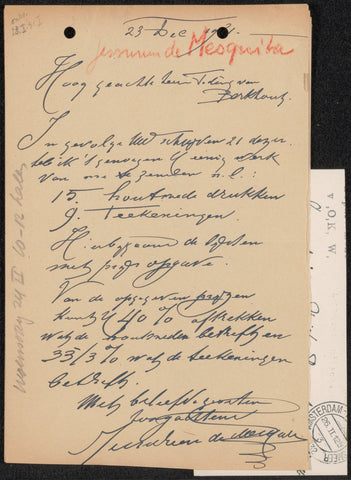 23 Dec
Jessurun de Mesquita
Hoog geachte heer Teding van
Berkhout,
Ingevolge Uw schrijven 21 dezer
heb ik 't genoegen U eenig werk
van me te zenden n.l.:
15. houtsnede drukken
9. Teekeningen.
Hierbijgaand de lijsten
met prijs opgave.
Van de opgegeven prijzen
kunt U 40% aftrekken
wat de houtsneden betreft en
33 1/3% wat de teekeningen
betreft.
Met beleefde groeten
hoogachtend
Jessurun de Mesquita
woensdag 24 II 10-12 halen
v. O. K. W.
AMSTERDAM